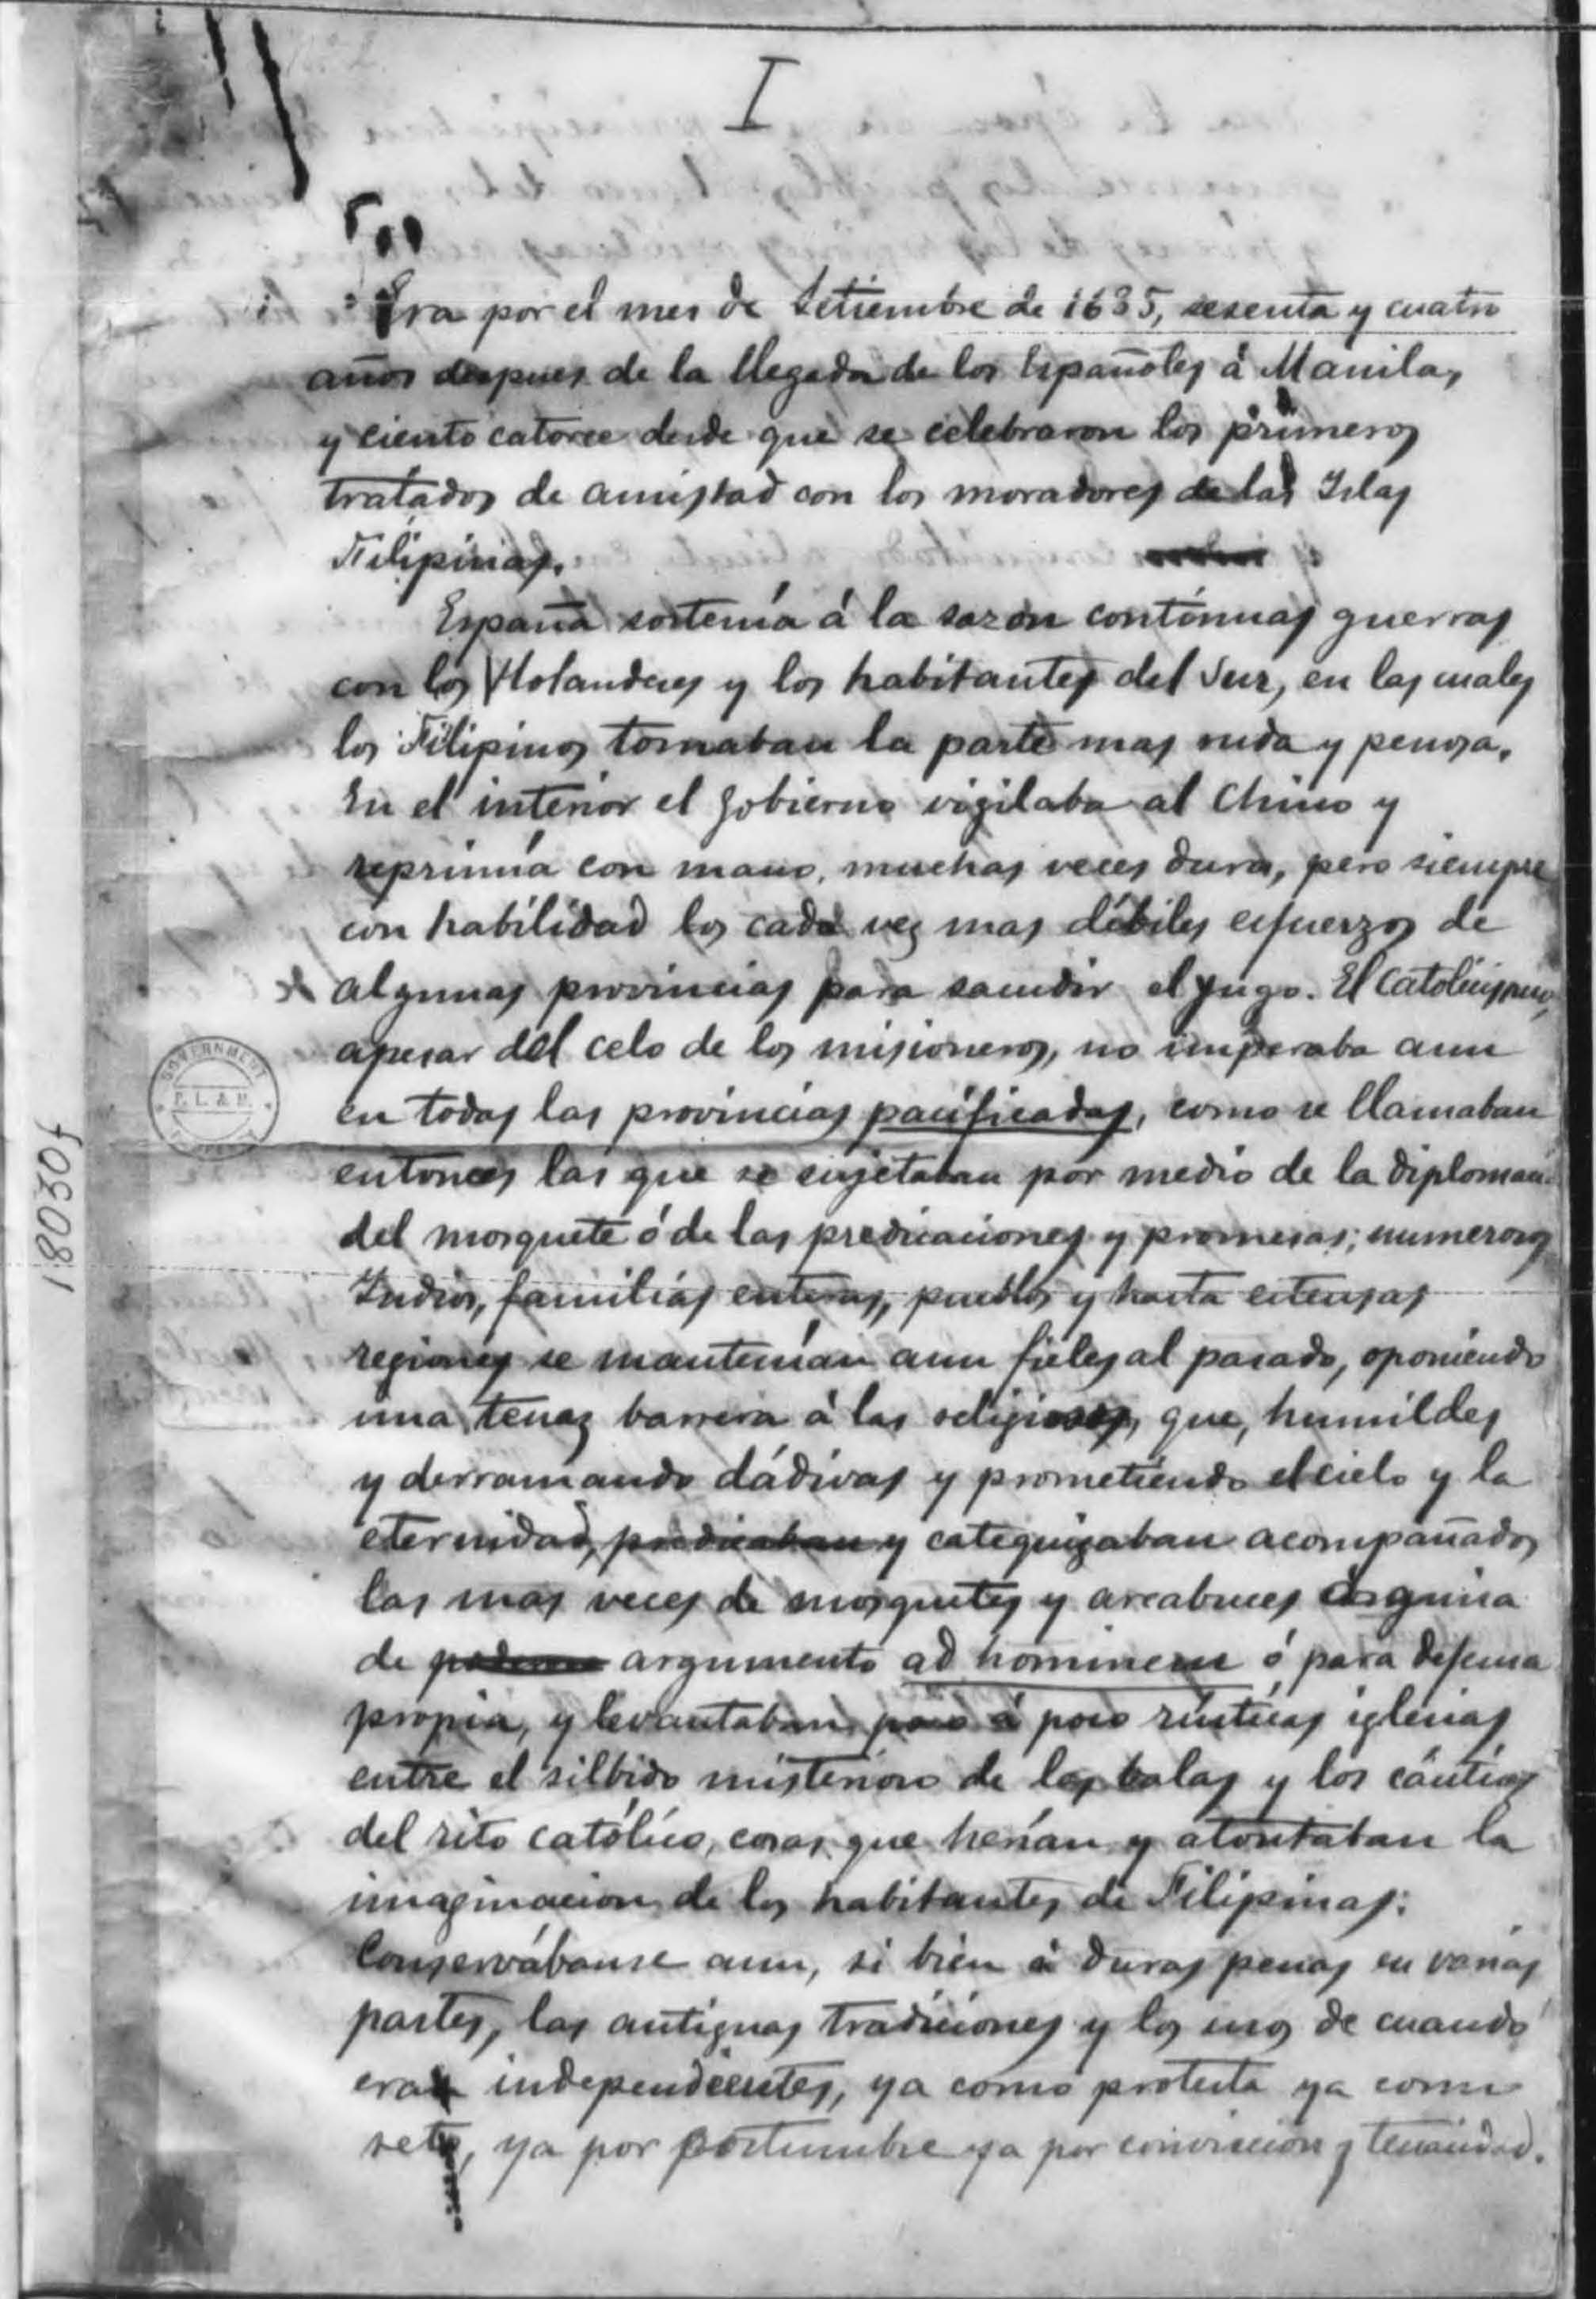 I
Era por el mes de Setiembre de 1635, sesenta y cuatro
años despues de la llegada de los Españoles á Manila,
y ciento catorce desde que se celebraron los primeros
tratados de amistad con los moradores de las Islas
Filipinas.
España sostenía á la sazon contínuas guerras
con los Holandeses y los habitantes del Sur, en las cuales
los Filipinos tomaban la parte mas ruda y penosa.
En el interior el gobierno vigilaba al Chino y
reprimía con mano, muchas veces dura, pero siempre
con habilidad los cada vez mas débiles esfuerzos de
algunas provincias para sacudir el yugo. El Catolicismo,
apesar del celo de los misioneros, no imperaba aun
en todas las provincias pacificadas, como se llamaban
entonces las que se sujetaban por medio de la diplomacia
del mosquete ó de las predicaciones y promesas; numerosos
Indios, familias enteras, pueblos y hasta estensas
regiones se mantenían aun fieles al pasado, oponiendo
una tenaz barrera á los religiosos, que, humildes
y derramando dádivas y prometiendo el cielo y la
eternidad, predicaban y catequizaban acompañados
las mas veces de mosquetes y arcabuces á guisa
de argumento ad hominem ó para defensa
propia, y levantaban poco á poco rústicas iglesias
entre el silbido misterioso de las balas y los cánticos
del rito católico, cosas que herían y atontaban la
imaginacion de los habitantes de Filipinas.
Conservábanse aun, si bien á duras penas en varias
partes, las antiguas tradiciones y los usos de cuando
eran independientes, ya como protesta ya como
reto, ya por costumbre ya por conviccion y tenacidad.
GOVERNMENT
P. L. & M.
18030f